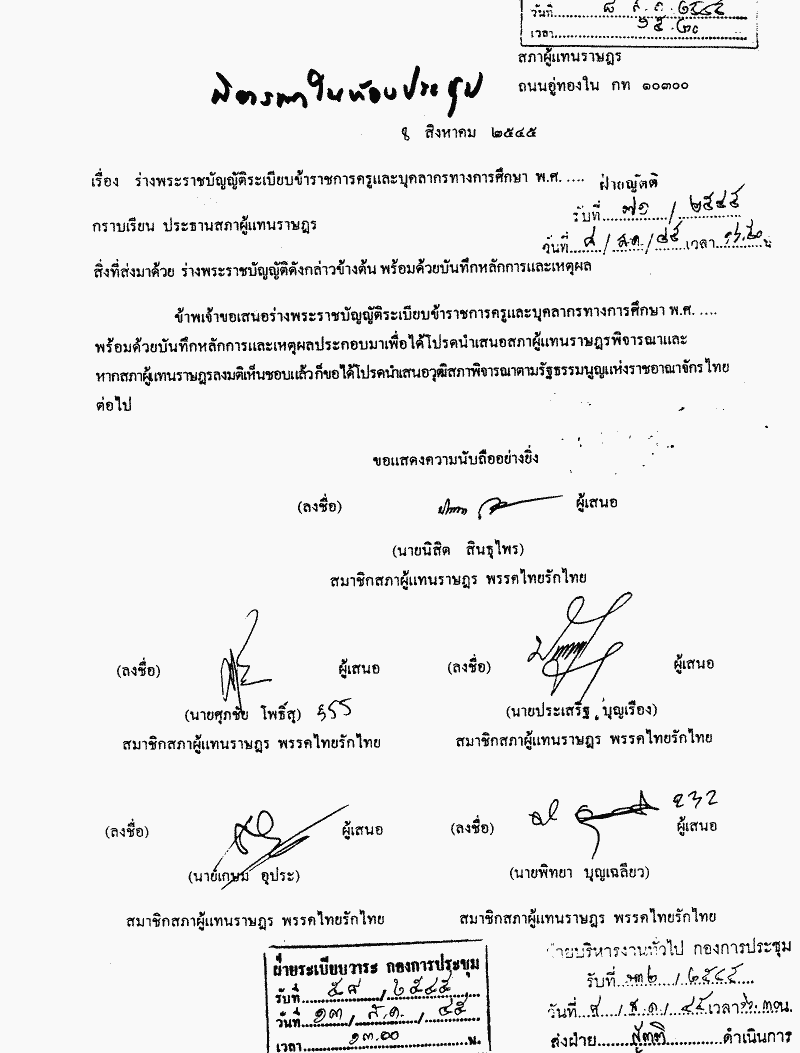 วันที่ ๘ ส.ค. ๒๕๔๕
เวลา ๑๕.๒๐
สภาผู้แทนราษฎร
ถนนอู่ทองใน กท ๑๐๓๐๐
พิจารณาในห้องประชุม
๘ สิงหาคม ๒๕๔๕
เรื่อง ร่างพระราชบัญญัติระเบียบข้าราชการครูและบุคลากรทางการศึกษา พ.ศ. ....
ฝ่ายญัตติ
รับที่ ๗๑ / ๒๕๔๕
กราบเรียน ประธานสภาผู้แทนราษฎร
วันที่ ๙ / ส.ค. / ๔๕ เวลา น
สิ่งที่ส่งมาด้วย ร่างพระราชบัญญัติดังกล่าวข้างต้น พร้อมด้วยบันทึกหลักการและเหตุผล
ข้าพเจ้าขอเสนอร่างพระราชบัญญัติระเบียบข้าราชการครูและบุคลากรทางการศึกษา พ.ศ. ....
พร้อมด้วยบันทึกหลักการและเหตุผลประกอบมาเพื่อได้โปรดนำเสนอสภาผู้แทนราษฎรพิจารณาและ
หากสภาผู้แทนราษฎรลงมติเห็นชอบแล้วก็ขอได้โปรดนำเสนอวุฒิสภาพิจารณาตามรัฐธรรมนูญแห่งราชอาณาจักรไทย
ต่อไป
ขอแสดงความนับถืออย่างยิ่ง
(ลงชื่อ) ผู้เสนอ
(นายนิสิต สินธุไพร)
สมาชิกสภาผู้แทนราษฎร พรรคไทยรักไทย
(ลงชื่อ) ผู้เสนอ (ลงชื่อ) ผู้เสนอ
(นายศุภชัย โพธิ์สุ) ๖๕๕ (นายประเสริฐ บุญเรือง)
สมาชิกสภาผู้แทนราษฎร พรรคไทยรักไทย สมาชิกสภาผู้แทนราษฎร พรรคไทยรักไทย
232
(ลงชื่อ) ผู้เสนอ (ลงชื่อ) ผู้เสนอ
(นายเกษม อุประ) (นายพิทยา บุญเฉลียว)
สมาชิกสภาผู้แทนราษฎร พรรคไทยรักไทย สมาชิกสภาผู้แทนราษฎร พรรคไทยรักไทย
ฝ่ายระเบียบวาระ กองการประชุม
รับที่ ๕๙ / ๒๕๔๕
วันที่ ๑๓ / ส.ค. / ๔๕
เวลา ๑๓.๐๐ น.
ฝ่ายบริหารงานทั่วไป กองการประชุม
รับที่ / ๒๕๔๕
วันที่ ๙ / ส.ค. / ๔๕ เวลา น.
ส่งฝ่าย ญัตติ ดำเนินการ